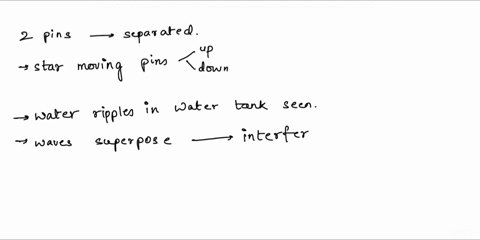 2 pins → separated.
→ star moving pins up
down
→ water ripples in water tank seen.
→ waves superpose → interfer